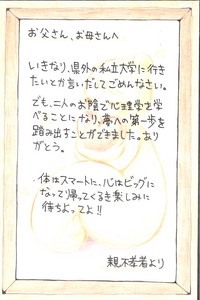 お父さん、お母さんへ
いきなり、県外の私立大学に行き
たいとか言いだしてごめんなさい。
でも、二人のお陰で心理学を学
べることになり、夢への第一歩を
踏み出すことができました。あり
がとう。
体はスマートに、心はビッグに
なって帰ってくるき楽しみに
待ちよってよ!!
親不孝者より